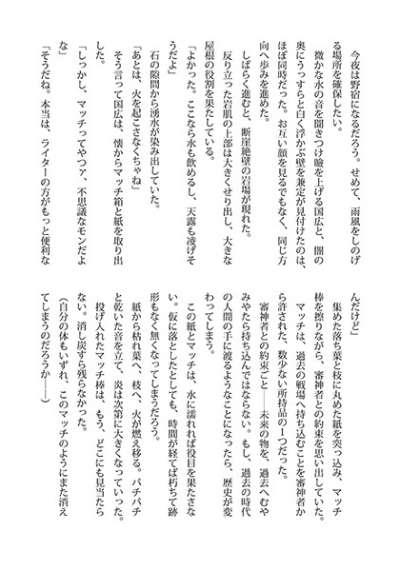 今夜は野宿になるだろう。せめて、雨風をしのげ
る場所を確保したい。
　微かな水の音を聞きつけ瞼を上げる国広と、闇の
奥にうっすらと白く浮かぶ壁を兼定が見付けたのは、
ほぼ同時だった。お互い顔を見るでもなく、同じ方
向へ歩みを進めた。
　しばらく進むと、断崖絶壁の岩場が現れた。
　反り立った岩肌の上部は大きくせり出し、大きな
屋根の役割を果たしている。
「よかった。ここなら水も飲めるし、天露も凌げそ
うだよ」
　石の隙間から湧水が染み出していた。
「あとは、火を起こさなくちゃね」
　そう言って国広は、懐からマッチ箱と紙を取り出
「しっかし、マッチってやつァ、不思議なモンだよ
な」
「そうだね。本当は、ライターの方がもっと便利な
んだけど」
　集めた落ち葉と枝に丸めた紙を突っ込み、マッチ
棒を擦りながら、審神者との約束を思い出していた。
　マッチは、過去の戦場へ持ち込むことを審神者か
ら許された、数少ない所持品の１つだった。
　審神者との約束ごと――未来の物を、過去へむや
みやたら持ち込んではならない。もし、過去の時代
の人間の手に渡るようなことになったら、歴史が変
わってしまう。
　この紙とマッチは、水に濡れれば役目を果たさな
い。仮に落としたとしても、時間が経てば朽ちて跡
形もなく無くなってしまうだろう。
　紙から枯れ葉へ、枝へ、火が燃え移る。パチパチ
と乾いた音を立て、炎は次第に大きくなっていった。
　投げ入れたマッチ棒は、もう、どこにも見当たら
ない。消し炭すら残らなかった。
（自分の体もいずれ、このマッチのようにまた消え
てしまうのだろうか――）